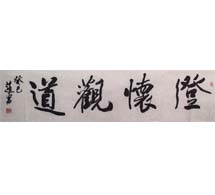 澄懷觀道
癸巳